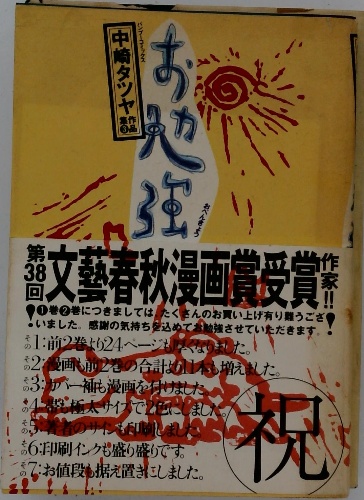 バンブーコミックス
中崎タツヤ
作品集③
お勉強
おべんきょう
第38回文藝春秋漫画賞受賞作家!!
❶巻❷巻につきましては、たくさんのお買い上げ有り難うござ
いました。感謝の気持ちを込めてお勉強させていただきます。
その1:前2巻より24ページも厚くなりました。
その2:漫画も前2巻の合計より1本も増えました。
その3:カバー袖も漫画を付けました。
その4:帯も極太サイズで2色にしました。
その5:著者のサインも印刷しました。
その6:印刷インクも盛り盛りです。
その7:お値段も据え置きにしました。
祝